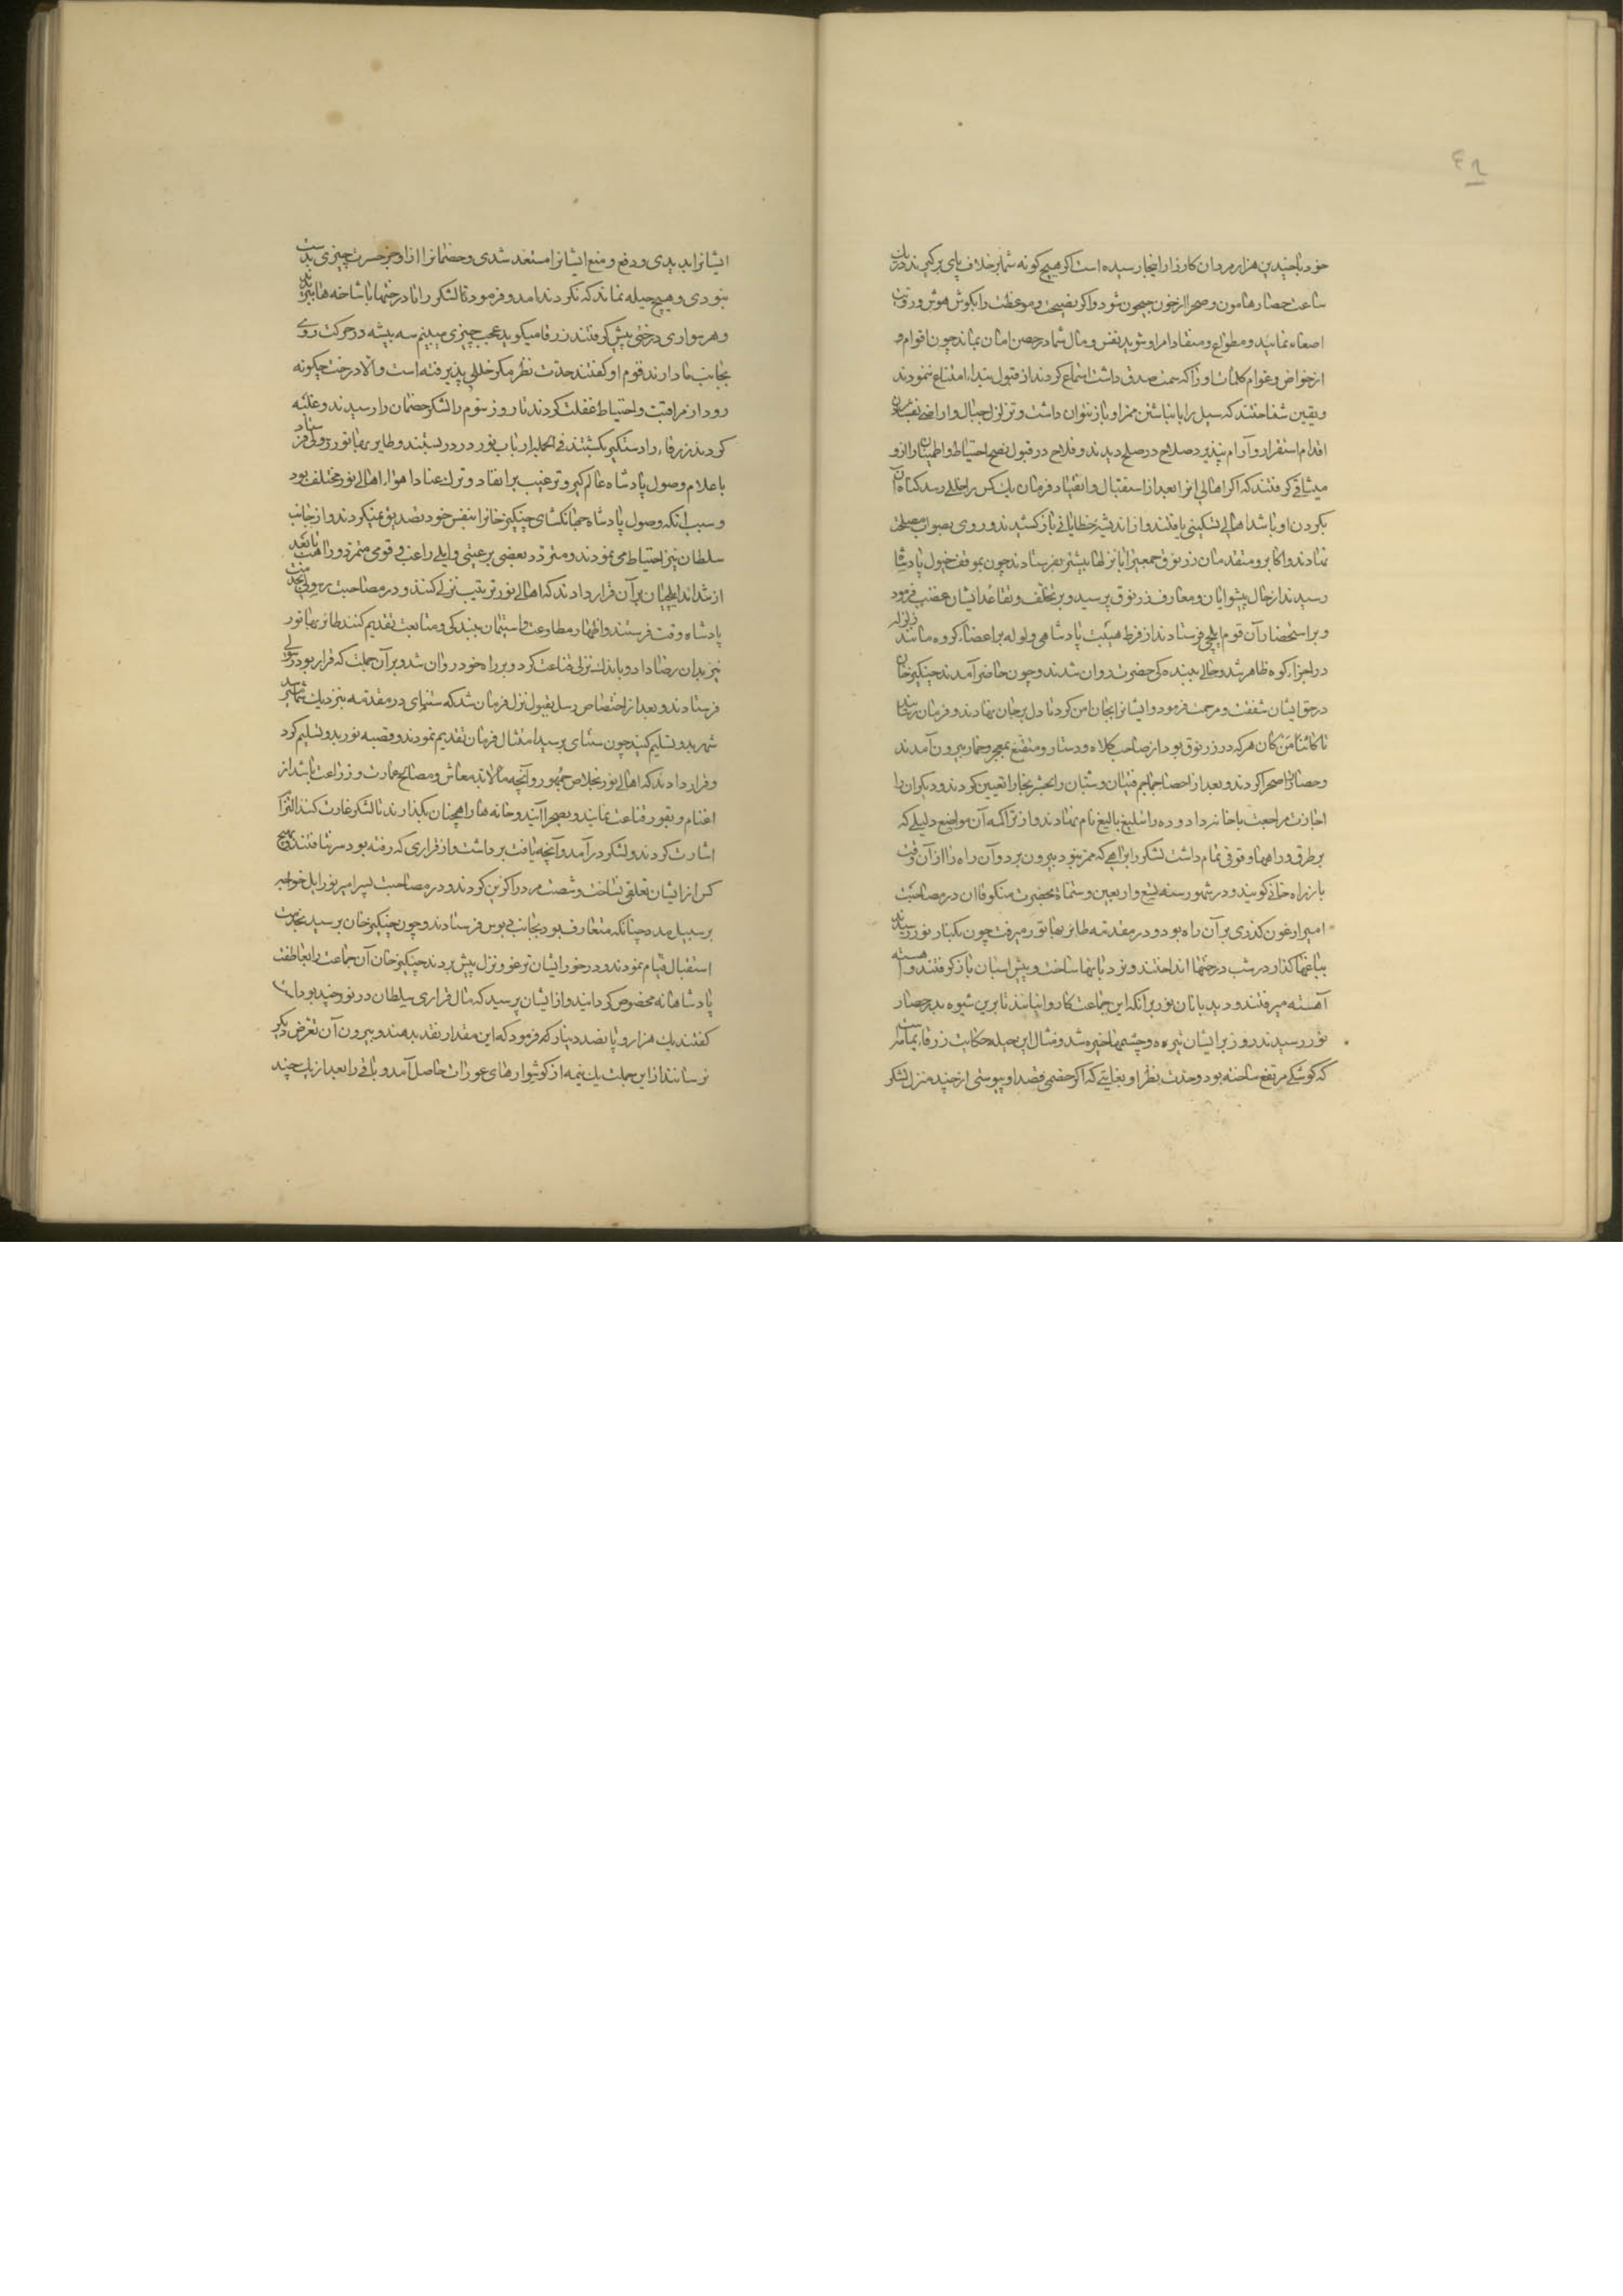 ٤٩
خود با چندین هزار مردان کارزار اینجا رسیده است اکر هیچ کونه شما بر خلاف پای برکیرند در یک
ساعت حصار هامون و صحرا از خون جیحون شود و اکر نصیحت و موعظت را بکوش هوش و رویت
اصغاء نمایید و مطواع و منقاد امر او شوید نفس و مال شما در حصن امان بماند چون اقوام و
از خواص و عوام کلمات او را که سمت صدق داشت استماع کردند از قبول پند او امتناع ننمودند
و یقین شناختند که سیل را با نباشتن ممر او باز نتوان داشت و تزلزل جبال و اراضی
اقدام استقرار و آرام نپذیرد صلاح در صلح دیدند و فلاح در قبول نصح احتیاط و اطمینان را از و
میثاقی کرفتند که اکر اهالی انرا بعد از استقبال و انقیاد فرمان یک کس را خللی رسد کناه آن
بکردن او باشد اهالی تسکینی یافتند و از اندیشه خطایائی باز کشیدند و روی بصواب مصلحت
نهادند و اکابر و متقدمان زرنوق جمعی را با نزلها بیشتر بفرستادند چون بموقف خیول پادشاه
رسیدند از حال پیشوایان و معارف زرنوق پرسید و بر تخلف و تقاعد ایشان غضب فرمود
و بر استحضار آن قوم ایلچی فرستادند از فرط هیبت پادشاهی ولوله بر اعضاء کروه مانند زلزله
در اجزاء کوه ظاهر شد و حالی ببنده کی حضرت روان شدند و چون حاضر آمدند چینکیز خان
در حق ایشان شفقت و مرحمت فرمود و ایشانرا بجان امن کرد تا دل بر جان نهادند و فرمان رسانید
تا کائنا من کان هرکه در زرنوق بود از صاحب کلاه و دستار و متقنع بمعجر و خمار بیرون آمدند
و حصار را صحرا کردند و بعد از احصا جماجم فتیان و شبان را بحشر بخارا تعیین کردند و دیکران را
اجازت مراجعت با خانه داد و ده را قتلیغ بالیغ نام نهادند و از تراکمه آن مواضع دلیلی که
بر طرق و راهها وقوفی تمام داشت لشکر را براهی که ممر نبود بیرون برد و آن راه را از آن وقت
باز راه خانی کویند و در شهور سنه تسع و اربعین و ستمائة بحضرت منکوقاان در مصاحبت
امیر ارغون کذری بر آن راه بود و در مقدمه طایر بهاتور میرفت چون بکنار نور رسیدند
بباغها کذار در شب درختها انداختند و نردبانها ساخت و پیش اسبان باز کرفتند و آهسته
آهسته میرفتند و دیدبانان نور بر آنکه این جماعت کاروانیانند تا برین شیوه بدر حصار
نور رسیدند روز بر ایشان تیره و چشمها خیره شد و مثال این حیله حکایت زرقاء یمامه است
که کوشکی مرتفع ساخته بود و حدت نظر او بغایتی که اکر خصمی قصد او پیوستی از چند منزل لشکر
ایشانرا بدیدی و دفع و منع ایشانرا مستعد شدی و خصمانرا از او جز حسرت چیزی بدست
نبودی و هیچ حیله نماند که نکردند امد و فرمود تا لشکر را تا درختها با شاخه ها ببریدند
و هر سواری درختی پیش کرفتند زرقا میکوید عجب چیزی می بینم سه بیشه در حرکت روی
بجانب ما دارند قوم او کفتند حدت نظر مکر خللی پذیرفته است و الا درخت چکونه
رود از مراقبت و احتیاط غفلت کردند تا روز سوم را لشکر خصمان در رسیدند و غلبه
کردند زرقاء را دستکیر بکشتند فی الجمله ارباب نور در در بستند و طایر بهاتور رسولی فرستاد
باعلام وصول پادشاه عالم کیر و ترغیب بر انقاد و ترک عناد اهواء اهالی نور مختلف بود
و سبب انکه وصول پادشاه جهانکشای چینکیز خانرا بنفس خود تصدیق نمیکردند و از جانب
سلطان نیز احتیاط می نمودند و متردد بعضی بر عیتی و ایلی راغب و قومی متمرد و راهب تا بعد
از شد اند ایلچیان بر آن قرار دادند که اهالی نور ترتیب نزلی کنند و در مصاحبت رسولی بخدمت
پادشاه وقت فرستند و اظهار مطاوعت و استیمان ببندکی و متابعت تقدیم کنند طائر بهاتور
نیز بدان رضا داد و باندک نزلی قناعت کرد و بر راه خود روان شد و بر آن جملت که قرار بود رسولی
فرستادند و بعد از اختصاص رسل بقبول نزل فرمان شد که سنتای در مقدمه بنزدیک شما میرسد
شهر بدو تسلیم کنید چون سنتای برسید امتثال فرمان تقدیم نمودند و قصبه نور بدو تسلیم کرد
و قرار دادند که اهالی نور بخلاص جمهور و آنچه مالابد معاش و مصالح عمارت و زراعت باشد از
اغنام و بقور قناعت نمایند و بصحرا آیند و خانه ها را همچنان بکذارند تا لشکر غارت کنند التزا
اشارت کردند و لشکر در آمد و آنچه یافت برداشت و از قراری که رفته بود سر نتافتند و هیچ
کس از ایشان تعلقی نساخت و شصت مرد را کزین کردند و در مصاحبت پسر امیر نور ایل خواجه
بر سبیل مدد چنانکه متعارف بود بجانب دبوس فرستادند و چون چینکیز خان برسید بخدمت
استقبال قیام نمودند و در خور ایشان ترغو و نزل پیش بردند چینکیز خان آن جماعت را بعاطفت
پادشاهانه مخصوص کردانید و از ایشان پرسید که مال قراری سلطان در نور چند بوده است
کفتند یک هزار و پانصد دینار که فرمود که این مقدار نقد بدهند و بیرون آن تعرض دیکر
نرسانند از این جملت یک نیمه از کوشوارهای عورات حاصل آمد و باقی را بعد از یک چند